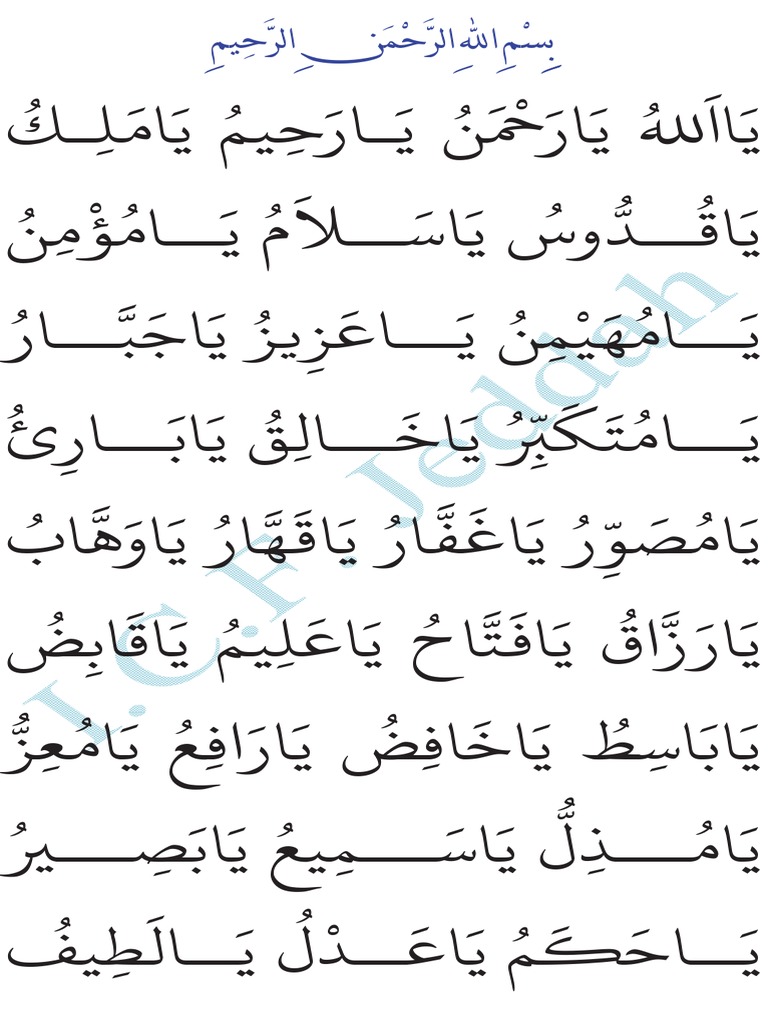 بِسْمِ اللهِ الرَّحْمَنِ الرَّحِيمِ
يَااَللهُ يَارَحْمَنُ يَـارَحِيمُ يَامَلِـكُ
يَاقُـدُّوسُ يَاسَـلاَمُ يَـامُؤْمِنُ
يَـامُهَيْمِنُ يَـاعَزِيزُ يَاجَبَّـارُ
يَـامُتَكَبِّرُ يَاخَـالِقُ يَابَـارِئُ
يَامُصَوِّرُ يَاغَفَّارُ يَاقَهَّارُ يَاوَهَّابُ
يَارَزَّاقُ يَافَتَّاحُ يَاعَلِيمُ يَاقَابِضُ
يَابَاسِطُ يَاخَافِضُ يَارَافِعُ يَامُعِزُّ
يَامُـذِلُّ يَاسَـمِيعُ يَابَصِـيرُ
يَـاحَكَمُ يَاعَـدْلُ يَـالَطِيفُ
I.C.F. Jeddah